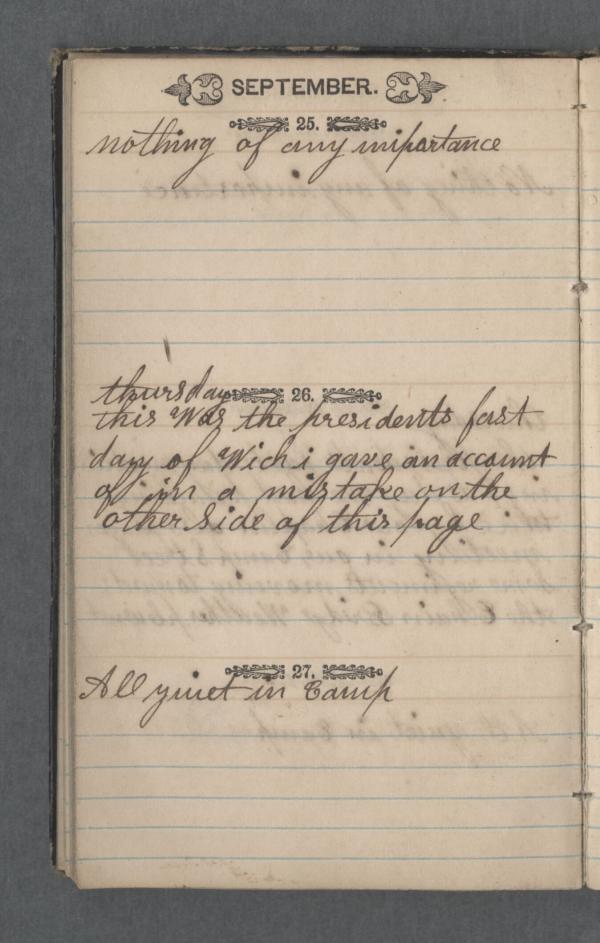 SEPTEMBER.
25.
nothing of any miportance
thursday 26.
this Was the presidents fast
day of Wich i gave an account
of in a mistake on the
other Side of this page
27.
All quiet in Camp